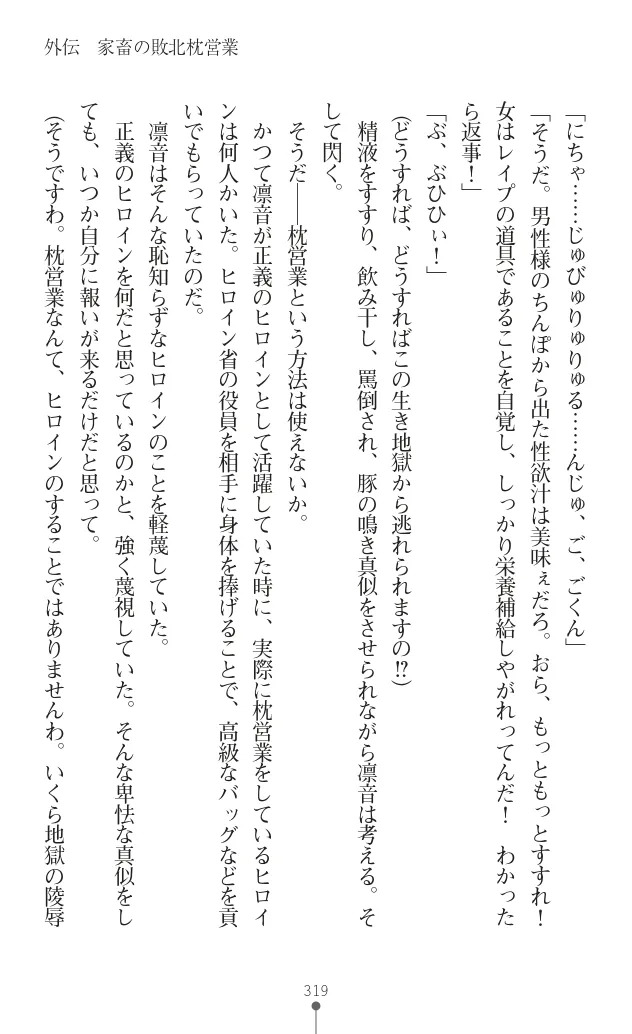 外伝　家畜の敗北枕営業
「にちゃ……じゅびゅりゅりゅる……んじゅ、ご、ごくん」
「そうだ。男性様のちんぽから出た性欲汁は美味ぇだろ。おら、もっともっとすすれ！
女はレイプの道具であることを自覚し、しっかり栄養補給しやがれってんだ！　わかった
ら返事！」
「ぶ、ぶひひぃ！」
（どうすれば、どうすればこの生き地獄から逃れられますの!?）
精液をすすり、飲み干し、罵倒され、豚の鳴き真似をさせられながら凛音は考える。そ
して閃く。
そうだ――枕営業という方法は使えないか。
かつて凛音が正義のヒロインとして活躍していた時に、実際に枕営業をしているヒロイ
ンは何人かいた。ヒロイン省の役員を相手に身体を捧げることで、高級なバッグなどを貢
いでもらっていたのだ。
凛音はそんな恥知らずなヒロインのことを軽蔑していた。
正義のヒロインを何だと思っているのかと、強く蔑視していた。そんな卑怯な真似をし
ても、いつか自分に報いが来るだけだと思って。
（そうですわ。枕営業なんて、ヒロインのすることではありませんわ。いくら地獄の陵辱
319